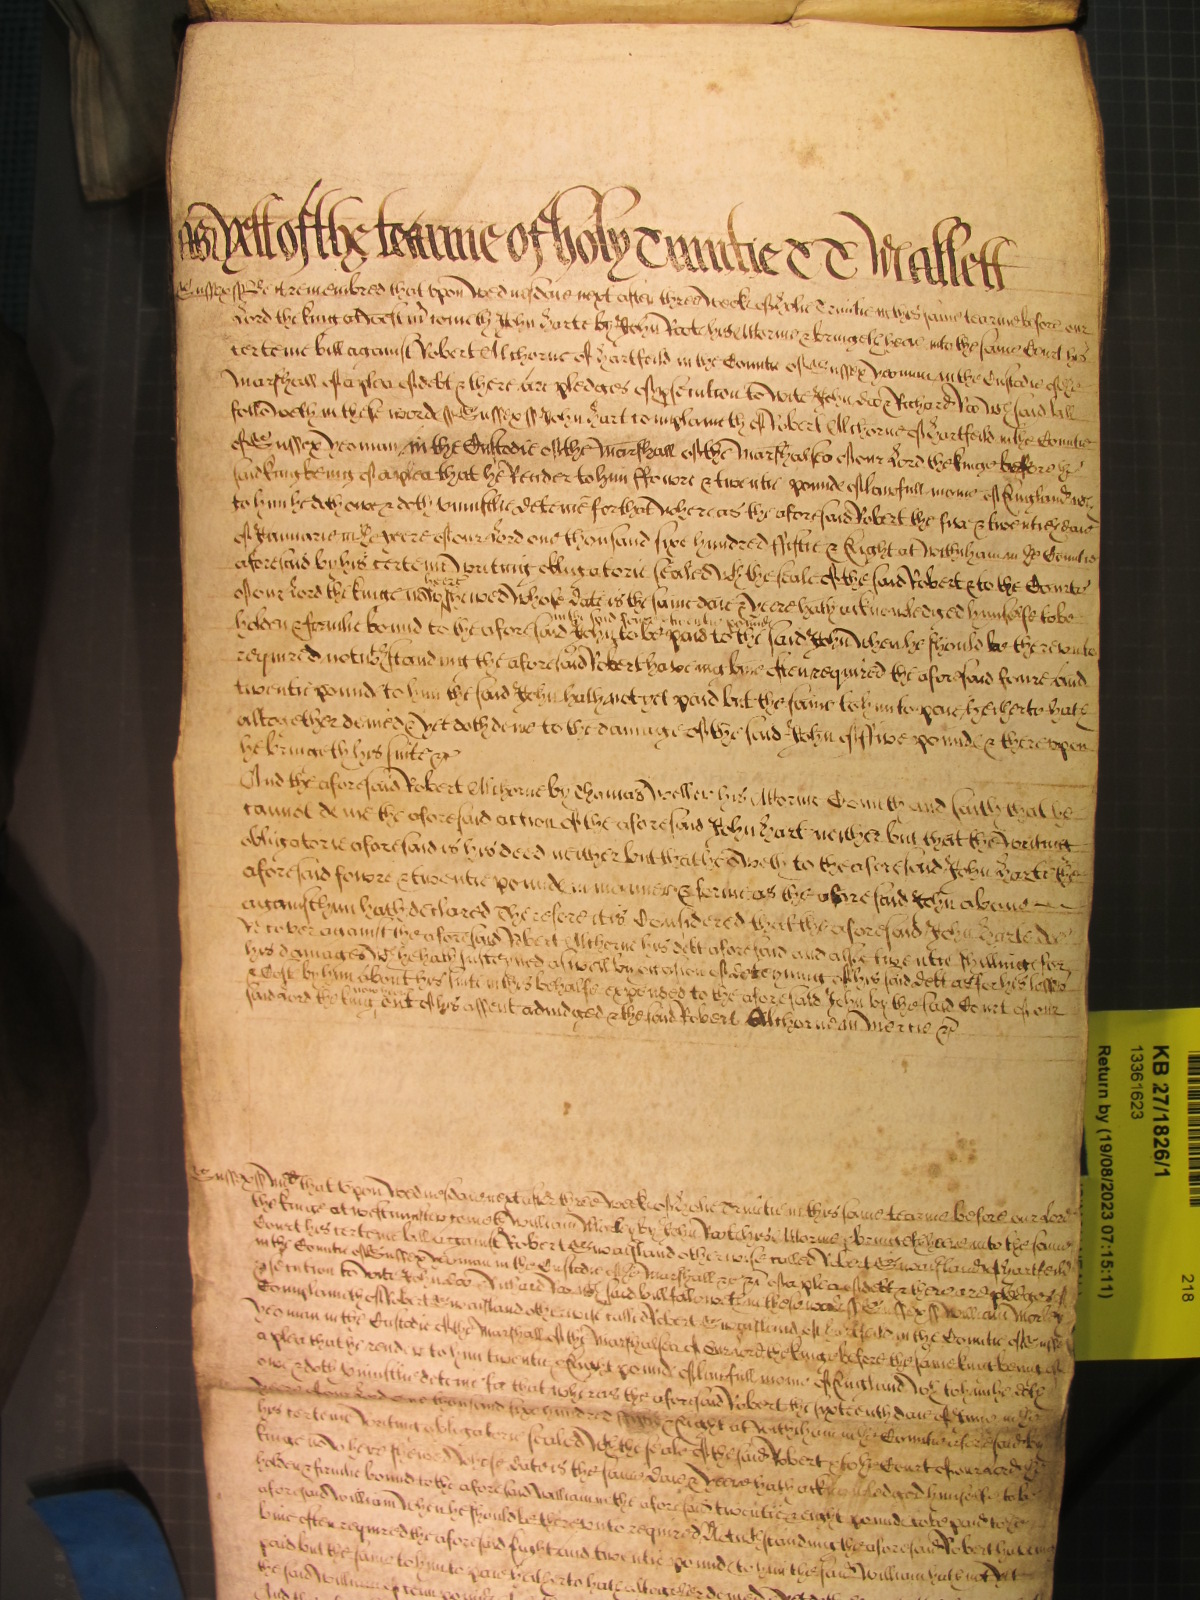 As yett of the tearme of holy Trinitie T T Mallett
Sussex ss Be it remembred that upon wednesdaie next after three weekes of Holie Trinitie in this same tearme before our
Lord the king at westmr cometh John Harte by John Roote his Attornie & bringeth heere into the same Court his
certeine bill against Robert Alchorne of Hartfeild in the Countie of Sussex yeoman in the Custodie of the
Marshall of a plea of debt & there are pledges of prosecution to wite John doo & Richard Roo wch said bill
followeth in these wordes ss Sussex ss John Hart complaineth of Robert Alchorne of Hartfeild in the Countie
of Sussex yeoman in the Custodie of the Marshall of the Marshalsea of our Lord the kinge before the
said king being of a plea that he Render to him ffowre & twentie pounds of lawfull monie of England wch
to him he doth owe & doth uniustlie deteine for that whereas the aforesaid Robert the five & twentieth daie
of Januarie in the yeere of our Lord one thousand sixe hundred fiftie & Eight at withiham in the Countie
aforesaid by his certeine writing obligatorie sealed wth the seale of the said Robert & to the Courte
of our Lord the kinge now heere shewed whose date is the same daie & yeere hath acknowledged himselfe to be
holden & firmlie bound to the aforesaid John in the said foure & twentie pounds to be paid to the said John when he should be thereunto
required notwthstanding the aforesaid Robert haveing bine often required the aforesaid foure and
twentie pound to him the said John hath not yet paid but the same to him to paie hitherto hath
altogether denied & yet doth denie to the damage of the said John of five pounds & thereupon
he bringeth his suite &c
And the aforesaid Robert Alchorne by Thomas weller his Attornie Cometh and saith that he
cannot denie the aforesaid action of the aforesaid John Hart neither but that the writing
obligatorie aforesaid is his deed neither but that he oweth to the aforesaid John Harte the
aforesaid fowre & twentie pounds in manner & forme as the aforesaid John above
against him hath declared Therefore it is Considered that the aforesaid John Harte doe
Recover against the aforesaid Robert Alchorne his debt aforesaid and also twentie shillings for
his damages wch he hath susteyned as well by occasion of deteyning of his said debt as for his losses
& Cost by him about his suite in this behalfe expended to the aforesaid John by the said Court of our
said Lord the king now heere out of his assent adiudged & the said Robert Alchorne in Mercie &c
Sussex ss Md that upon wednesdaie next after three weekes of Holie Trinitie in this same tearme before our Lord
the kinge at westminster cometh William by John Roote his Attornie & bringeth heere into the same
Court his certeine bill against Robert otherwise called Robert of Hartfeild
in the Countie of Sussex yeoman in the Custodie of the Marshall &c of a plea of debt & there are pledges of
prosecution to wite John doo & Richard Roo wch said bill followeth in these wordes ss Sussex ss William
Complaineth of Robert otherwise called Robert of Hartfeild in the Countie of Sussex
yeoman in the Custodie of the Marshall of the Marshalsea of our Lord the kinge before the same king being of
a plea that he render to him twentie & Eight pounds of lawfull monie of England wch to him he doth
owe & doth uniustlie deteine for that whereas the aforesaid Robert the sixteenth daie of in the
yeere of our Lord one thousand sixe hundred & Eight at withiham in the Countie aforesaid by
his certeine writing obligatorie sealed wth the seale of the said Robert & to the Court of our Lord the
kinge now heere shewed whose date is the same daie & yeere hath acknowledged himselfe to be
holden & firmlie bound to the aforesaid William in the aforesaid twentie & eight pounds to be paid to the
aforesaid William when he should be thereunto required Notwthstanding the aforesaid Robert haveing
bine often required the aforesaid Eight and twentie pounds to him the said William hath not yet
paid but the same to him to paie hitherto hath altogether denied
the said William
KB 27/1826/1
13361623
Return by (19/08/2023 07:15:11)
218